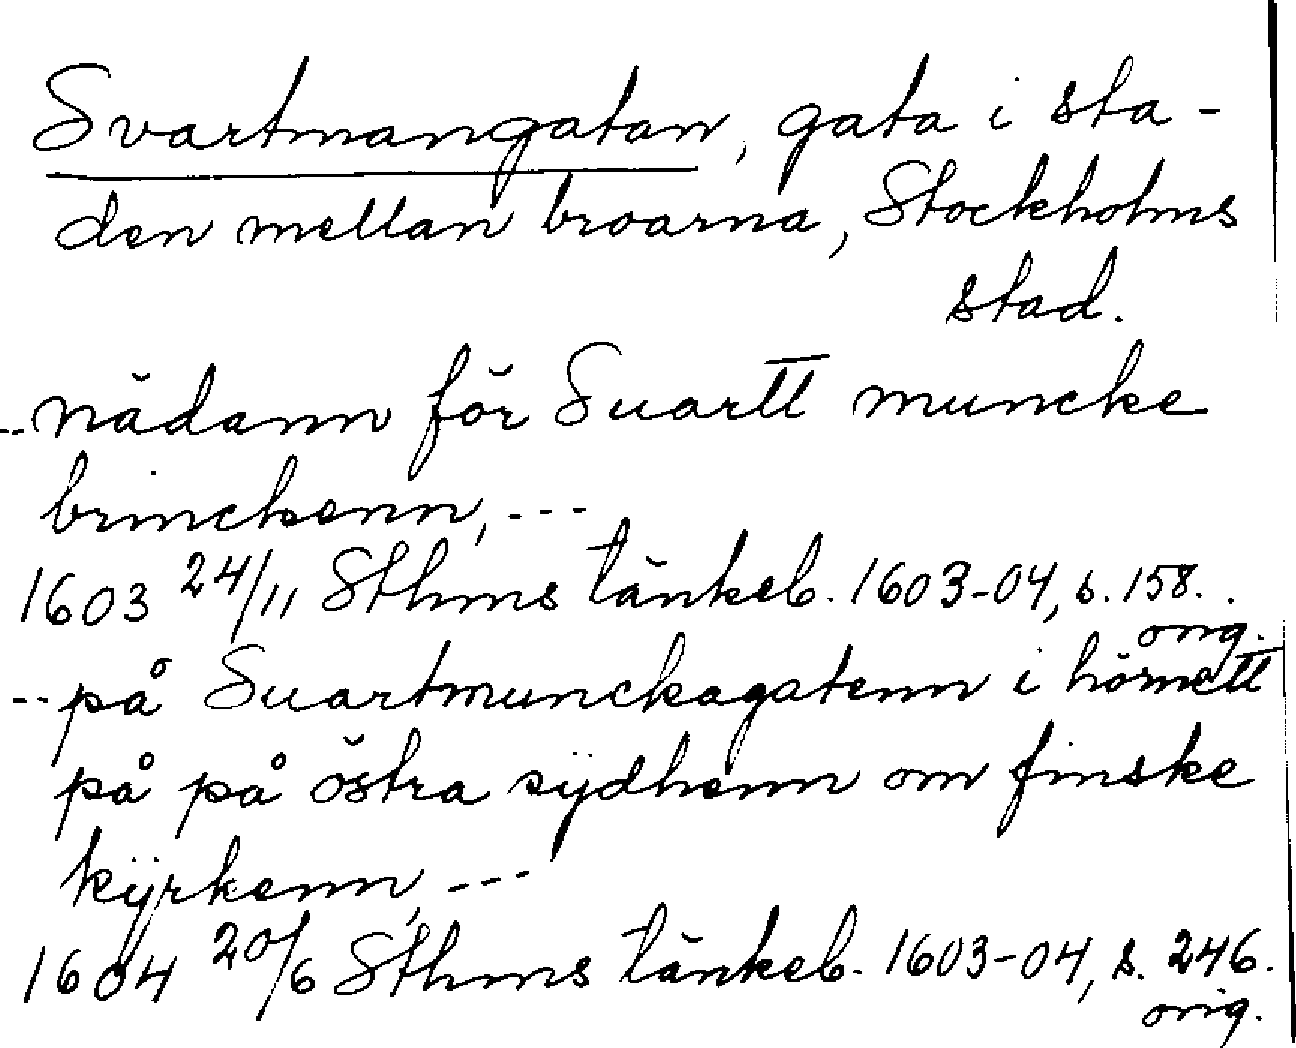 Svartmangatan, gata i sta-
den mellan broarna, Stockholms
stad.
-- nådann för Suartt muncke
brinckenn, ---
1603 24/11 Sthms tänkeb. 1603-04, s. 158.
orig.
-- på Suartmunckagatenn i hörnett
på på östra sÿdhenn om finske
kÿrkenn, ---
1604 20/6 Sthms tänkeb. 1603-04, s. 246.
orig.